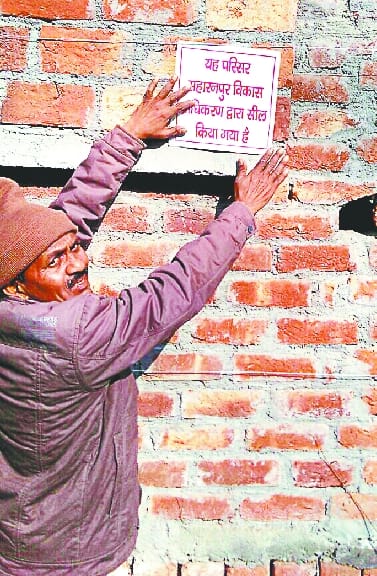 यह परिसर
सहारनपुर विकास
प्राधिकरण द्वारा सील
किया गया है